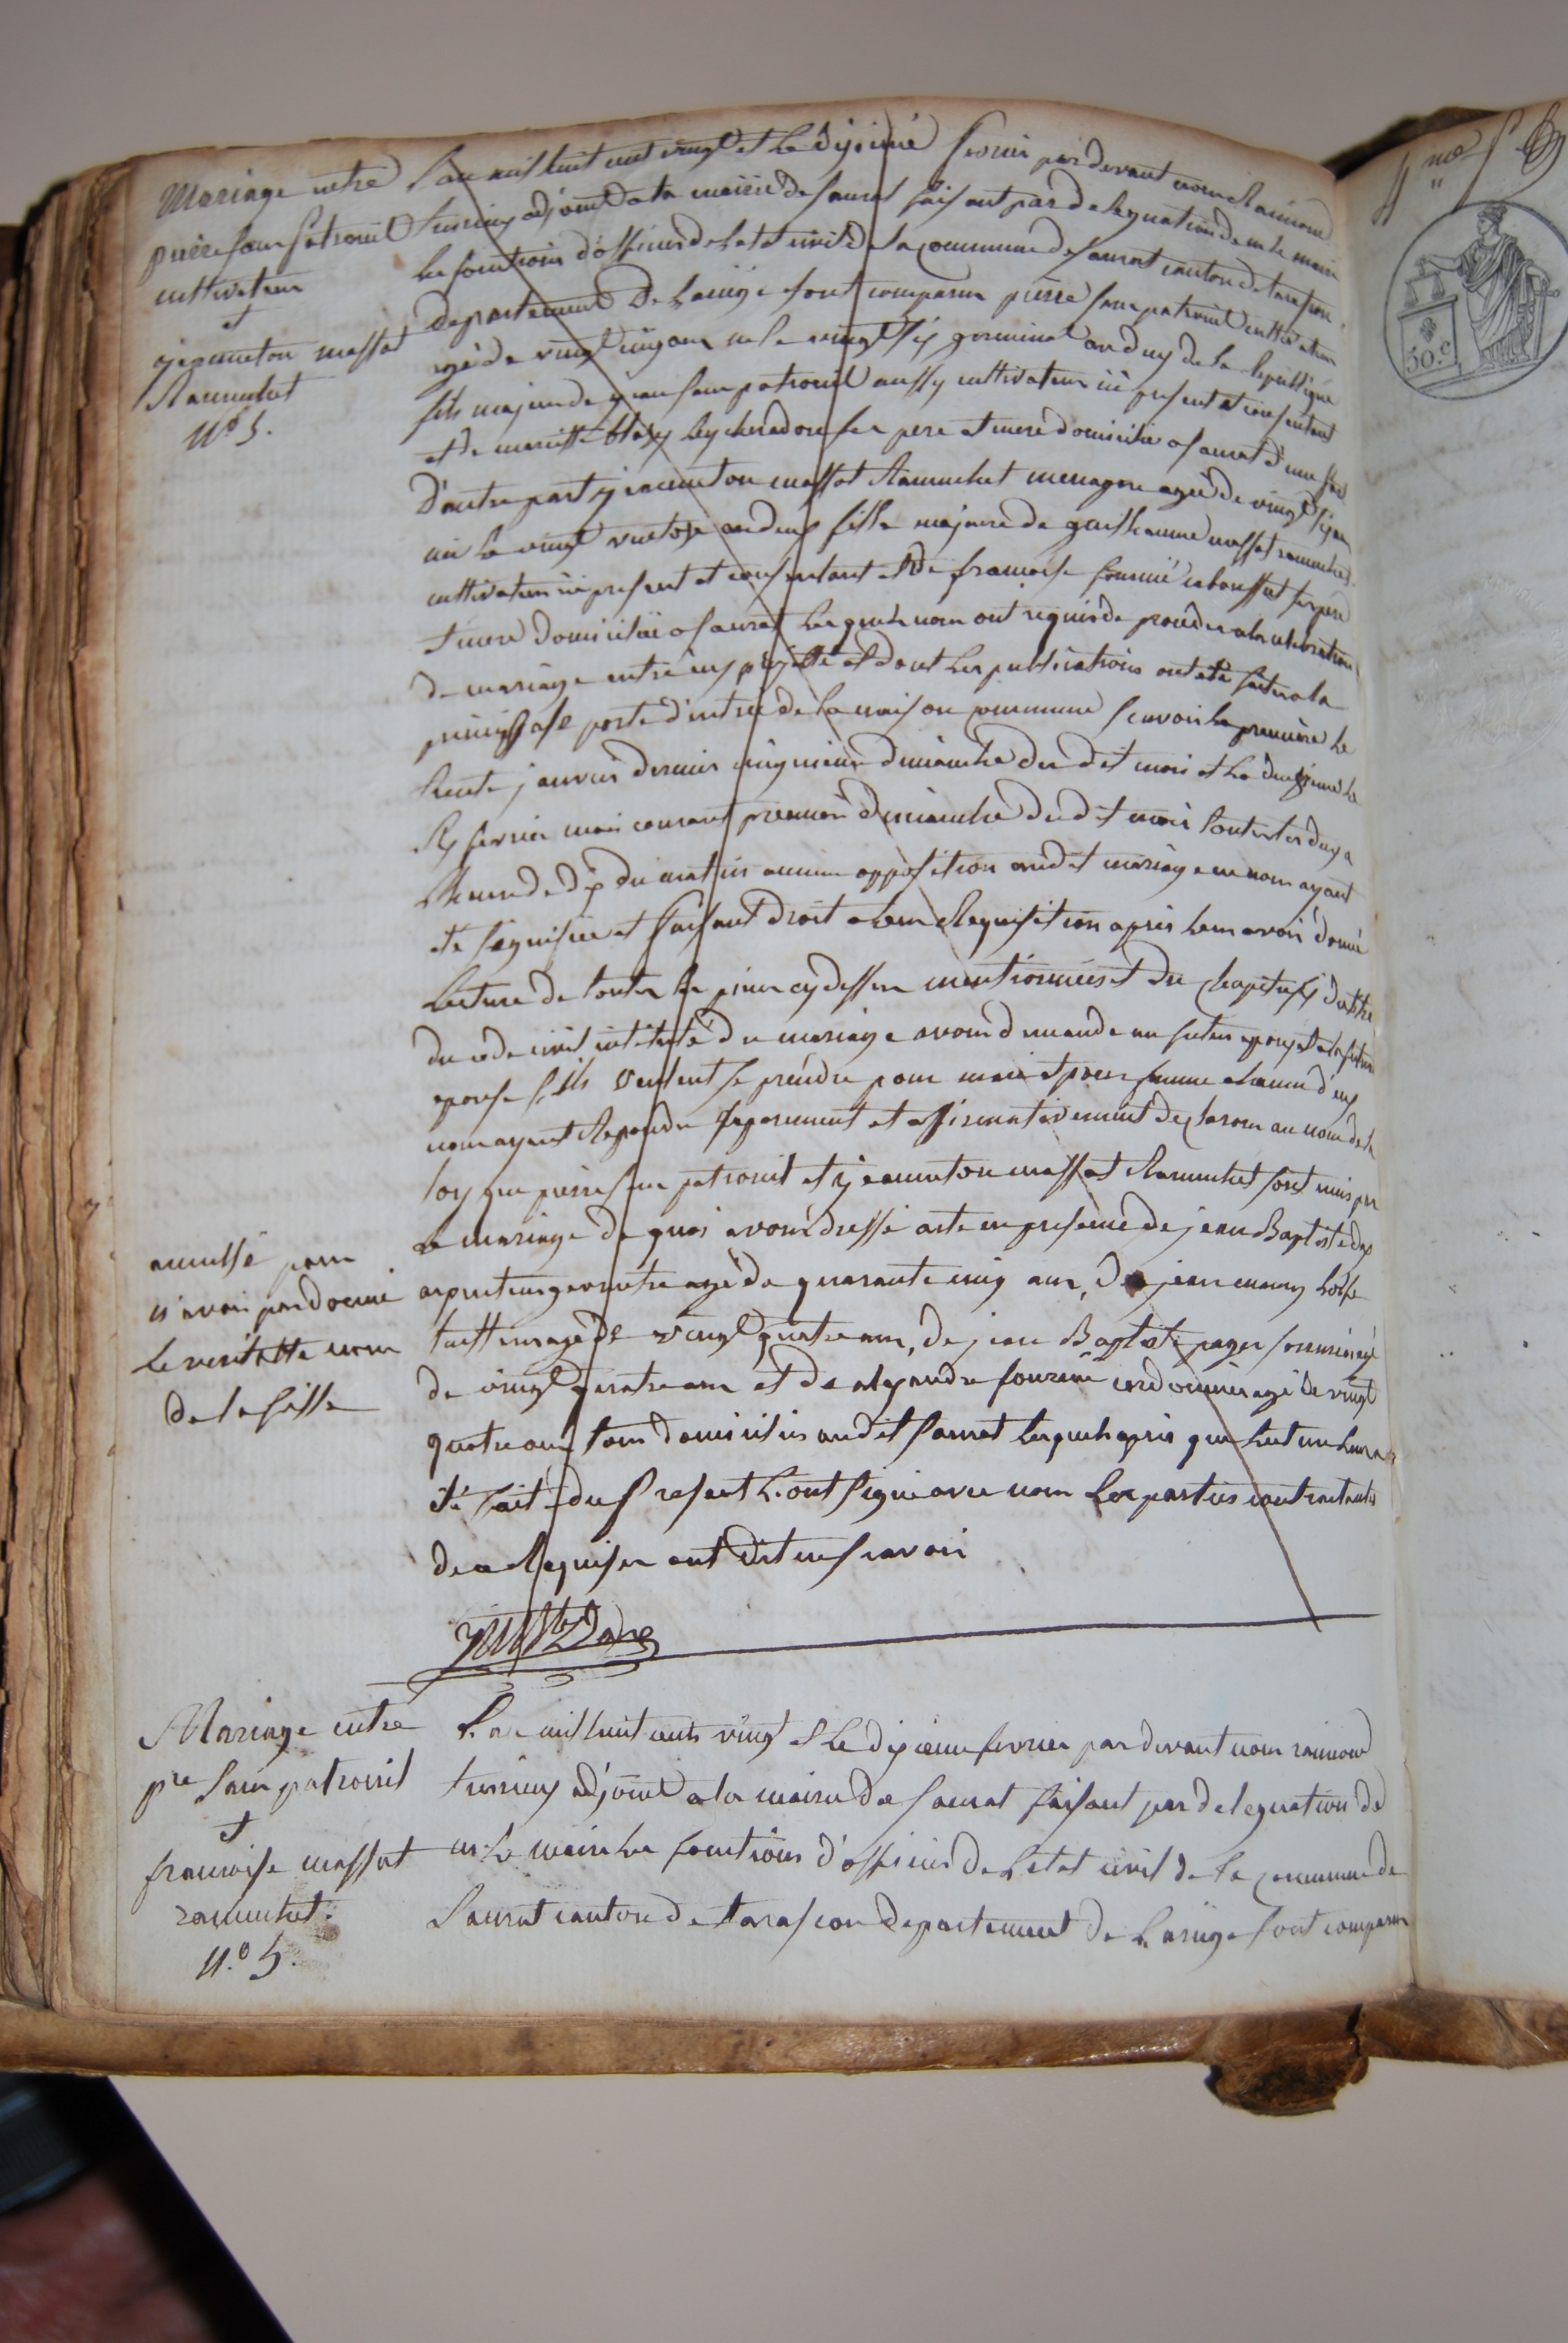 Mariage entre
pierre faur patrouil
cultivateur
et
jeanneton massat
Ramuchet
N.º 5.
L'an mil huit cent vingt et le dixieme fevrier par devant nous Raimond
adjoint a la mairie de saurat faisant par delegation de mr le maire
les fonctions d'officier de letat civil de la commune de saurat canton de tarascon
departement de Lariège sont comparus pierre faur patrouil cultivateur
agé de vingt cinq ans né le vingt six germinal an deux de la republique
fils majeur de jean faur patrouil aussy cultivateur ici present et consentant
et de ses pere et mere domiciliés a saurat d'une part
D'autre part jeanneton massat Ramuchet menagere agée de vingt six ans
née le vingt ventose an deux fille majeure de guilhaume massat ramuchet
cultivateur ici present et consentant et de francoise ses pere
et mere domiciliés a saurat lesquels nous ont requis de proceder a la celebration
de mariage entre eux projetté et dont les publications ont eté faites a la
principale porte d'entrée de la maison commune scavoir la premiere le
trente janvier dernier cinquieme dimanche du dit mois et la deuxieme le
six fevrier mois courant premier dimanche du dit mois toutes les deux a
l'heure de dix du matin aucune opposition au dit mariage ne nous ayant
eté signifiée et faisant droit a leur Requisition apres leur avoir donné
lecture de toutes les pieces cy dessus mentionnées et du chapitre six du titre
du code civil intitulé du mariage avons demandé au futur epoux et a la future
epouse s'ils veulent se prendre pour mari et pour femme chacun d'eux
nous ayant Repondu separement et affirmativement declarons au nom de la
loy que pierre faur patrouil et jeanneton massat Ramuchet sont unis par
le mariage de quoi avons dressé acte en presence de jean Baptiste
arpenteur geometre agé de quarante cinq ans, de jean
agé de vingt quatre ans, de jean Baptiste agé
de vingt quatre ans et de alexandre cordonnier agé de vingt
quatre ans tous domiciliés au dit saurat lesquels apres que lecture leur a
eté faite du present l'ont signé avec nous les parties contractantes
de ce Requises ont dit ne scavoir
annullé pour
n'avoir pas donné
le veritable nom
de la fille
Mariage entre
pre faur patrouil
et
francoise massat
ramuchet.
N.º 5.
L'an mil huit cents vingt et le dixieme fevrier par devant nous raimond
adjoint a la mairie de saurat faisant par delegation de
mr le maire les fonctions d'officier de letat civil de la commune de
Saurat canton de tarascon departement de Lariège sont comparus
50.c